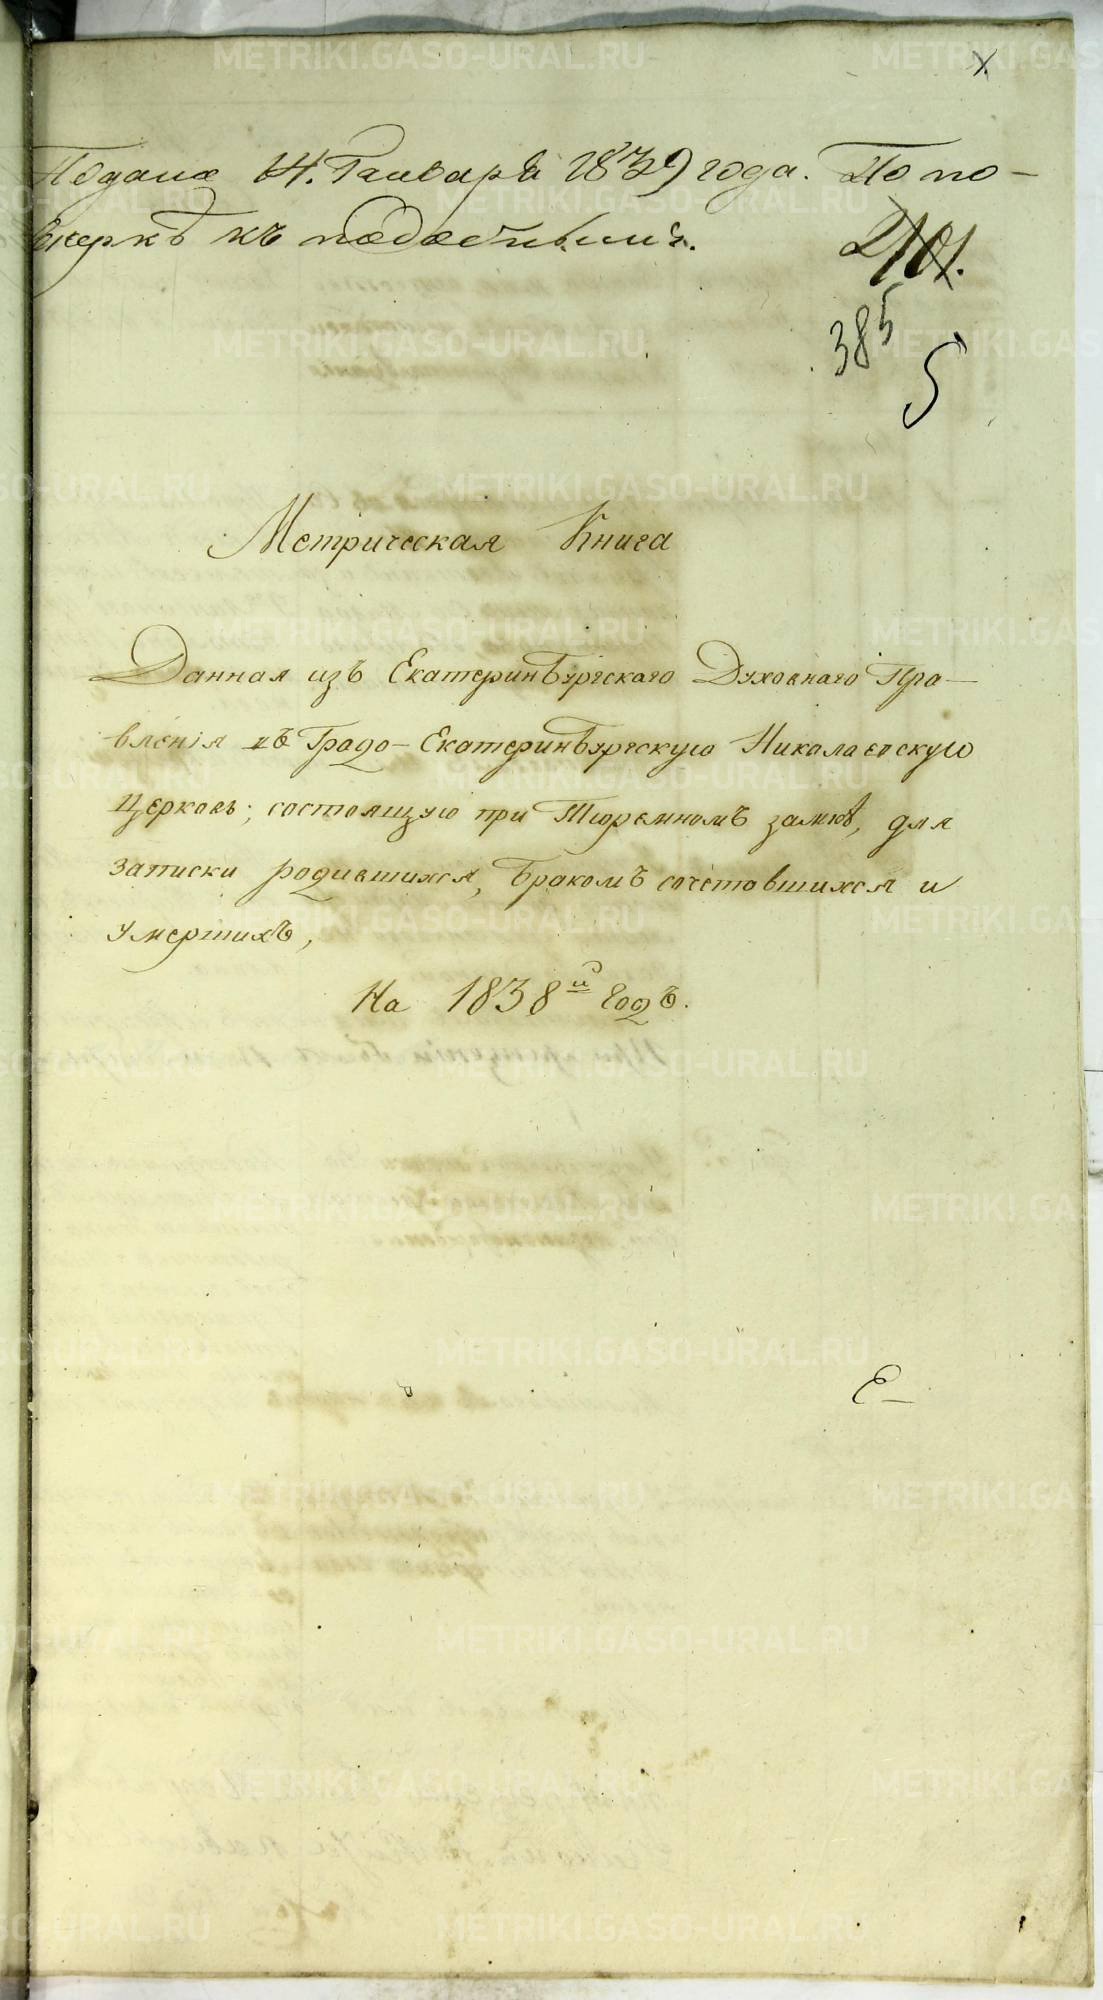 Подана 14. Генваря 1839 года. По по-
веркѣ къ подобнымъ.
385
5
Метрическая Книга
Данная изъ Екатеринбургскаго Духовнаго Пра-
вленія въ Градо-Екатеринбургскую Николаевскую
Церковь; состоящую при Тюремномъ замкѣ, для
записки родившихся, бракомъ сочетавшихся и
умершихъ,
На 1838й Годъ.
Е-
METRIKI.GASO-URAL.RU